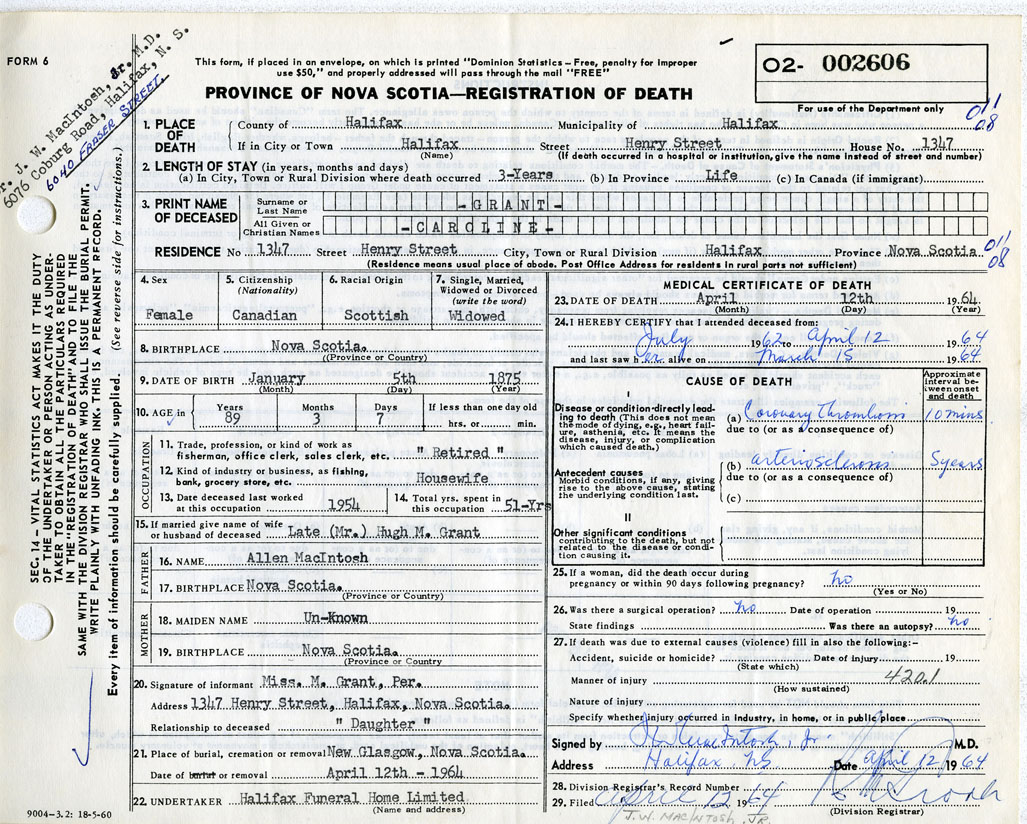 FORM 6
Dr. J. W. MacIntosh, Jr. M.D.
6076 Coburg Road, Halifax, N. S.
6040 FRASER STREET.
This form, if placed in an envelope, on which is printed "Dominion Statistics – Free, penalty for improper
use $50," and properly addressed will pass through the mail "FREE"
02- 002606
PROVINCE OF NOVA SCOTIA—REGISTRATION OF DEATH
For use of the Department only
011
08
1. PLACE OF DEATH
County of Halifax Municipality of Halifax
If in City or Town Halifax Street Henry Street House No. 1347
(Name) (If death occurred in a hospital or institution, give the name instead of street and number)
2. LENGTH OF STAY (in years, months and days)
(a) In City, Town or Rural Division where death occurred 3-Years (b) In Province Life (c) In Canada (if immigrant)
3. PRINT NAME OF DECEASED
Surname or Last Name -GRANT-
All Given or Christian Names -CAROLINE-
RESIDENCE No 1347 Street Henry Street City, Town or Rural Division Halifax Province Nova Scotia
011
08
(Residence means usual place of abode. Post Office Address for residents in rural parts not sufficient)
4. Sex
Female
5. Citizenship
(Nationality)
Canadian
6. Racial Origin
Scottish
7. Single, Married,
Widowed or Divorced
(write the word)
Widowed
8. BIRTHPLACE Nova Scotia.
(Province or Country)
9. DATE OF BIRTH January 5th 1875
(Month) (Day) (Year)
10. AGE in
Years Months Days If less than one day old
89 3 7 hrs. or min.
OCCUPATION
11. Trade, profession, or kind of work as
fisherman, office clerk, sales clerk, etc. " Retired "
12. Kind of industry or business, as fishing,
bank, grocery store, etc. Housewife
13. Date deceased last worked
at this occupation 1954
14. Total yrs. spent in
this occupation 51-Yrs
15. If married give name of wife
or husband of deceased Late (Mr.) Hugh M. Grant
FATHER
16. NAME Allen MacIntosh
17. BIRTHPLACE Nova Scotia.
(Province or Country)
MOTHER
18. MAIDEN NAME Un-Known
19. BIRTHPLACE Nova Scotia.
(Province or Country
20. Signature of informant Miss. M. Grant, Per.
Address 1347 Henry Street, Halifax, Nova Scotia.
Relationship to deceased " Daughter "
21. Place of burial, cremation or removal New Glasgow, Nova Scotia.
Date of burial or removal April 12th - 1964
22. UNDERTAKER Halifax Funeral Home Limited
(Name and address)
9004-3.2: 18-5-60
MEDICAL CERTIFICATE OF DEATH
23. DATE OF DEATH April 12th 1964
(Month) (Day) (Year)
24. I HEREBY CERTIFY that I attended deceased from:
July 1962 to April 12 1964
and last saw her alive on March 15 1964
CAUSE OF DEATH
Approximate
interval be-
tween onset
and death
I
Disease or condition directly lead-
ing to death (This does not mean
the mode of dying, e.g., heart fail-
ure, asthenia, etc. It means the
disease, injury, or complication
which caused death.)
(a) Coronary Thrombosis 10 mins
due to (or as a consequence of)
Antecedent causes
Morbid conditions, if any, giving
rise to the above cause, stating
the underlying condition last.
(b) arteriosclerosis 5 years
due to (or as a consequence of)
(c)
II
Other significant conditions
contributing to the death, but not
related to the disease or condi-
tion causing it.
25. If a woman, did the death occur during
pregnancy or within 90 days following pregnancy? no
(Yes or No)
26. Was there a surgical operation? no Date of operation 19
State findings Was there an autopsy? no
27. If death was due to external causes (violence) fill in also the following:-
Accident, suicide or homicide? Date of injury 19
(State which)
Manner of injury 420.1
(How sustained)
Nature of injury
Specify whether injury occurred in Industry, in home, or in public place
Signed by J W MacIntosh, Jr M.D.
Address Halifax NS Date April 12 1964
28. Division Registrar's Record Number
29. Filed April 12 1964
(Division Registrar)
J.W. MACINTOSH, JR.
SEC. 14 – VITAL STATISTICS ACT MAKES IT THE DUTY
OF THE UNDERTAKER OR PERSON ACTING AS UNDER-
TAKER TO OBTAIN ALL THE PARTICULARS REQUIRED
IN THE "REGISTRATION OF DEATH" AND TO FILE THE
SAME WITH THE DIVISION REGISTRAR WHO SHALL ISSUE THE BURIAL PERMIT.
WRITE PLAINLY WITH UNFADING INK. THIS IS A PERMANENT RECORD.
Every item of information should be carefully supplied. (See reverse side for instructions.)